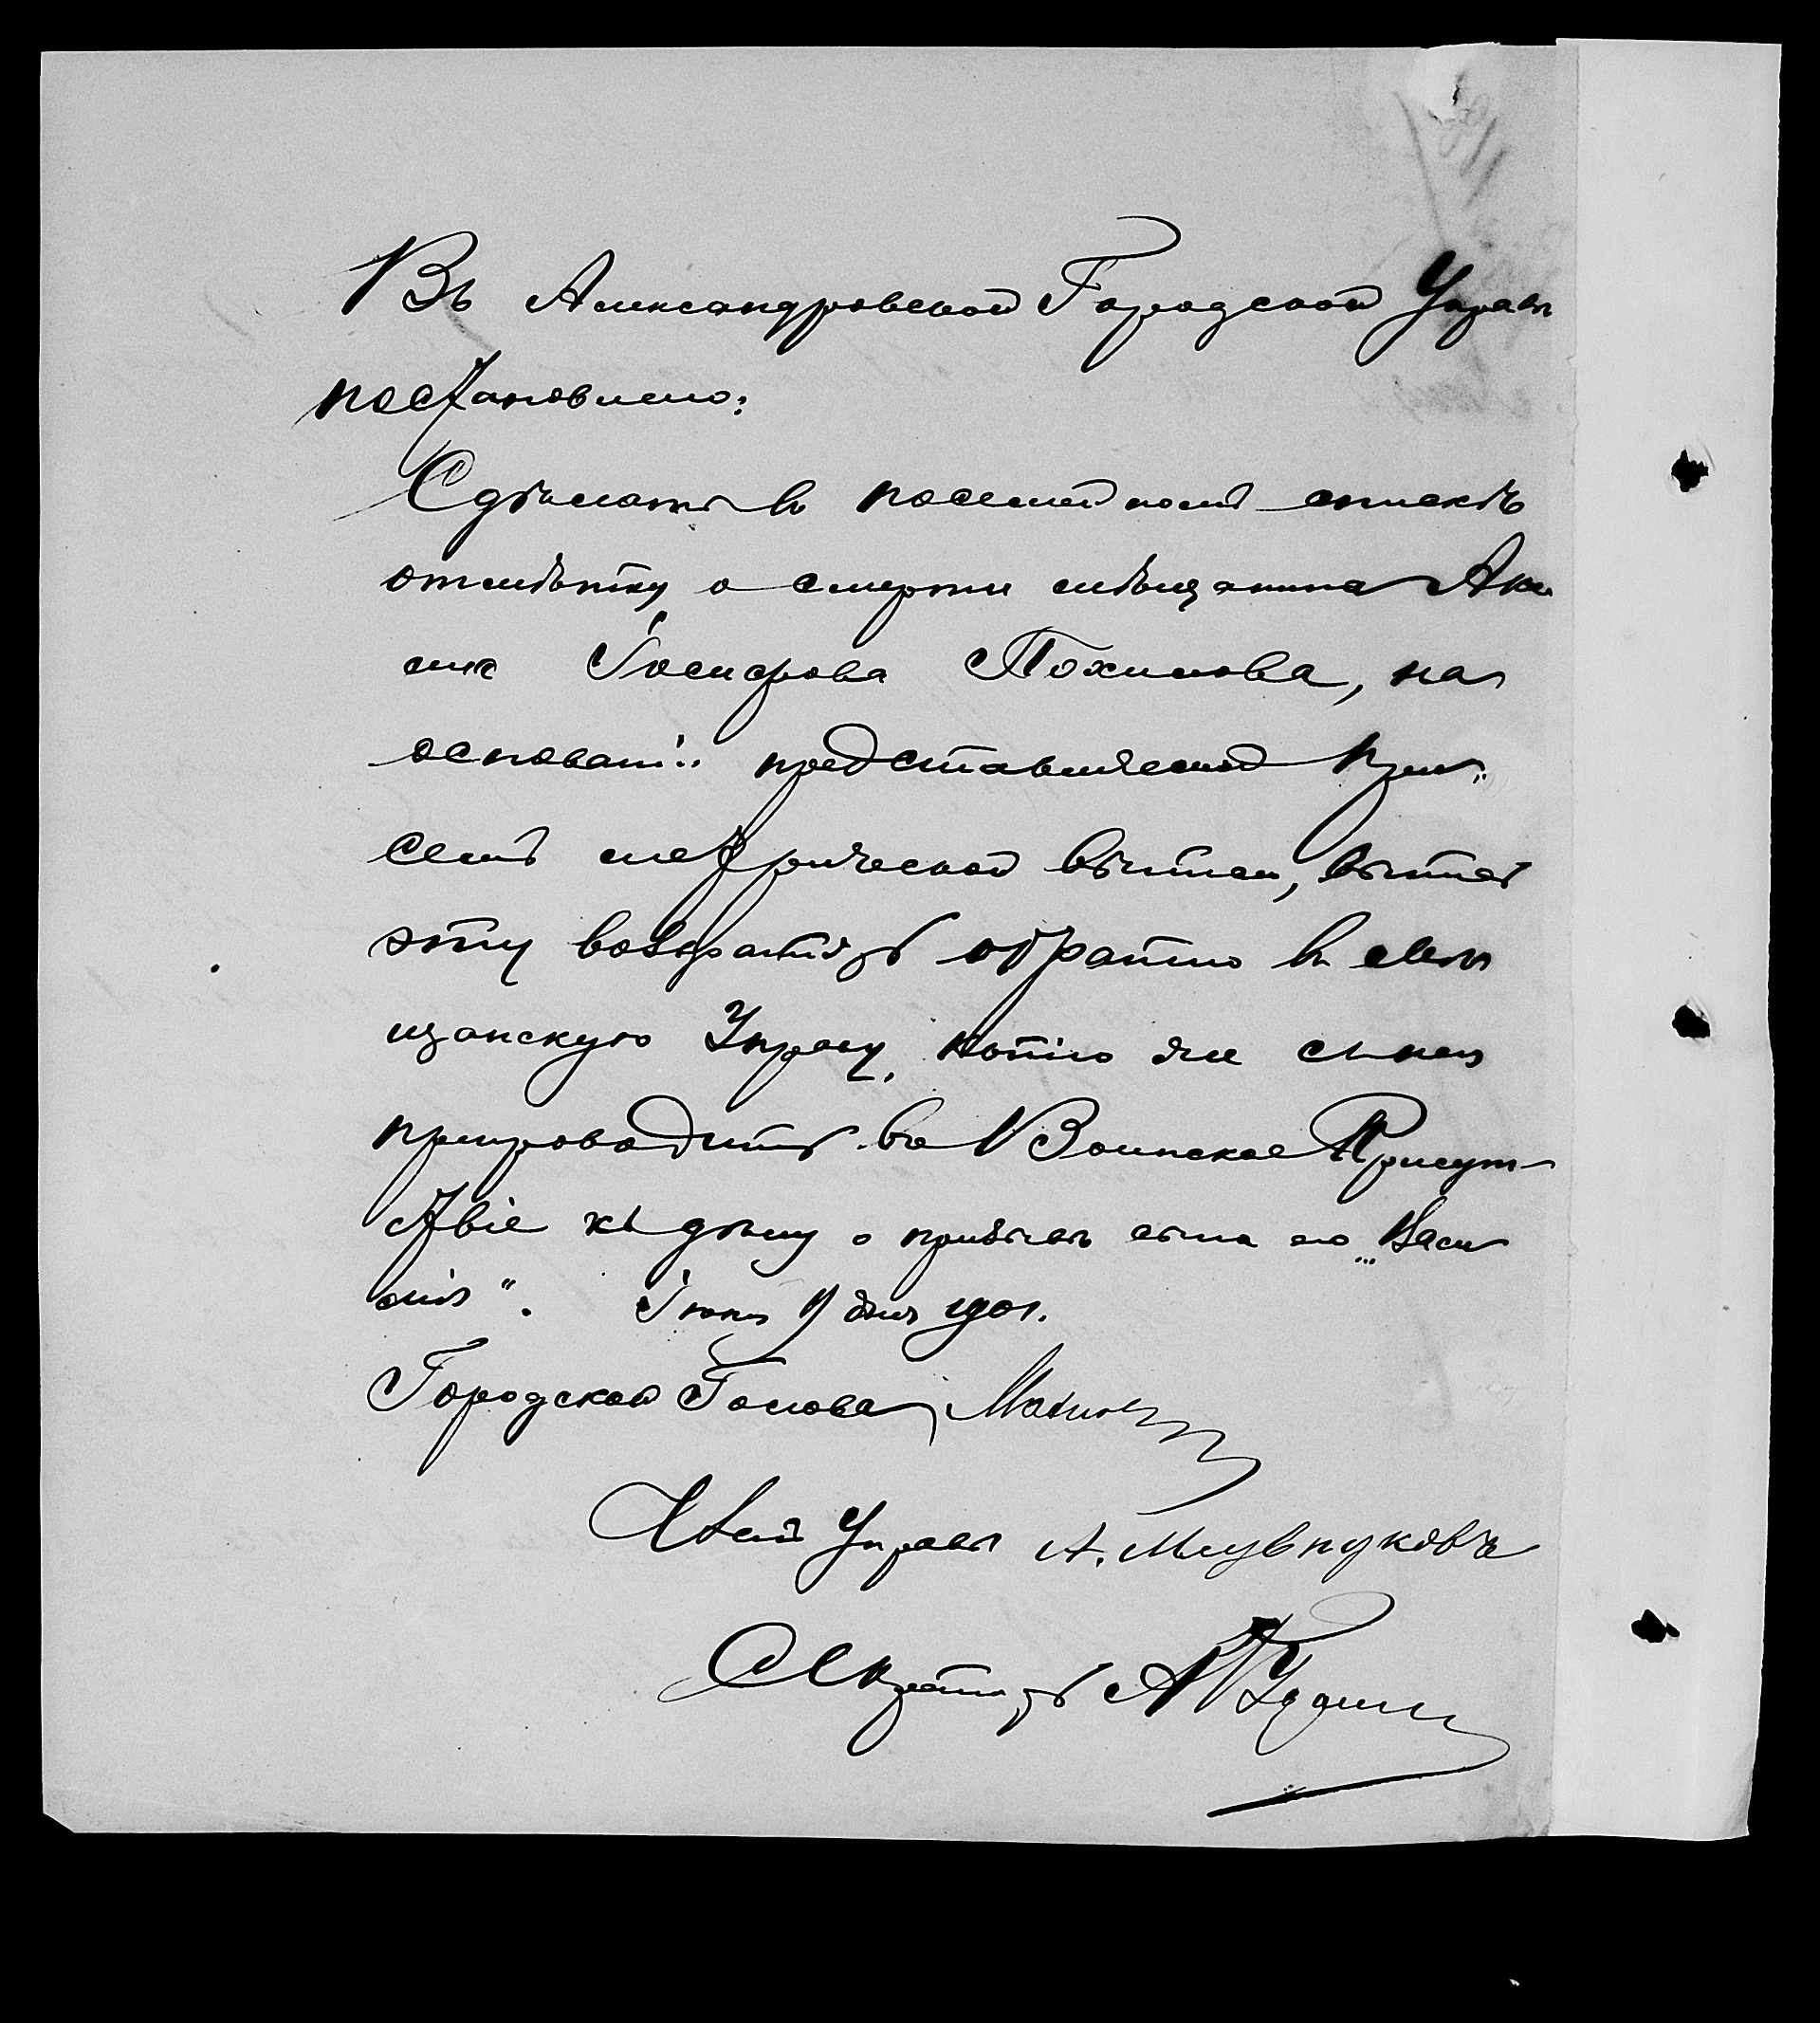 Въ Александровской Городской Управѣ
постановлено:
Сдѣлать въ посемейномъ спискѣ
отмѣтку о смерти мѣщанина Аки
ма Іосифова Похилова, на
основаніи представленной при
семъ метрической выписи, выпись
эту возвратить обратно въ Мѣ
щанскую Управу, копію же съ нея
препроводить въ Воинское Присут-
ствіе къ дѣлу о призывѣ сына его „Васи
лія“. Іюня 9 дня 1901.
Городской Голова
Членъ Управы А.
Секретарь